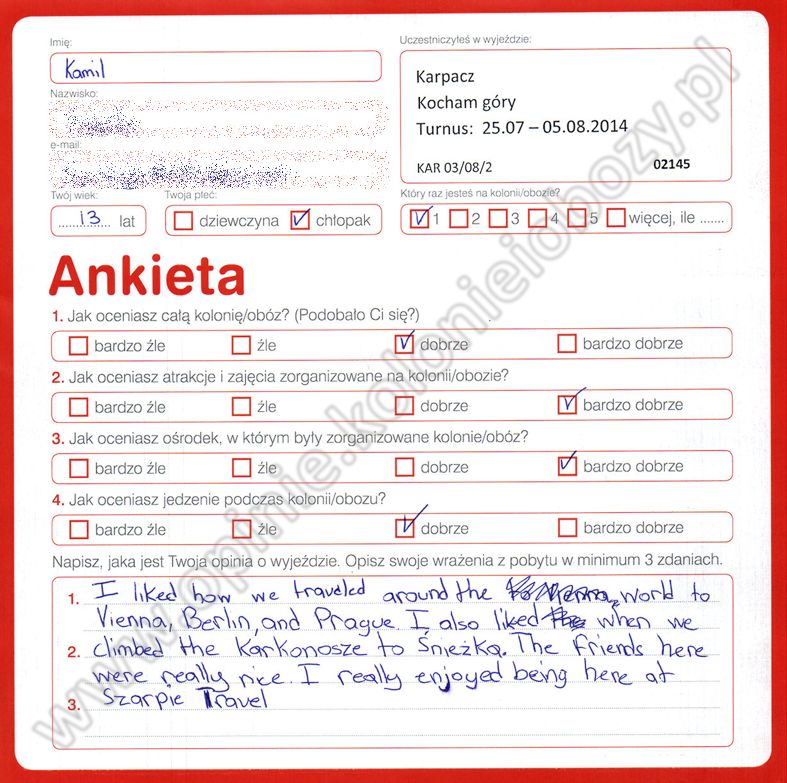 Imię:
Kamil
Nazwisko:
e-mail:
Twój wiek:
13 lat
Twoja płeć:
dziewczyna chłopak
Uczestniczyłeś w wyjeździe:
Karpacz
Kocham góry
Turnus: 25.07 – 05.08.2014
KAR 03/08/2 02145
Który raz jesteś na kolonii/obozie?
1 2 3 4 5 więcej, ile .......
Ankieta
1. Jak oceniasz całą kolonię/obóz? (Podobało Ci się?)
bardzo źle źle dobrze bardzo dobrze
2. Jak oceniasz atrakcje i zajęcia zorganizowane na kolonii/obozie?
bardzo źle źle dobrze bardzo dobrze
3. Jak oceniasz ośrodek, w którym były zorganizowane kolonie/obóz?
bardzo źle źle dobrze bardzo dobrze
4. Jak oceniasz jedzenie podczas kolonii/obozu?
bardzo źle źle dobrze bardzo dobrze
Napisz, jaka jest Twoja opinia o wyjeździe. Opisz swoje wrażenia z pobytu w minimum 3 zdaniach.
1. I liked how we traveled around the world to
Vienna, Berlin, and Prague. I also liked when we
2. climbed the Karkonosze to Śnieżka. The friends here
were really nice. I really enjoyed being here at
3. Szarpie Travel
www.opinie.kolonieiobozy.pl